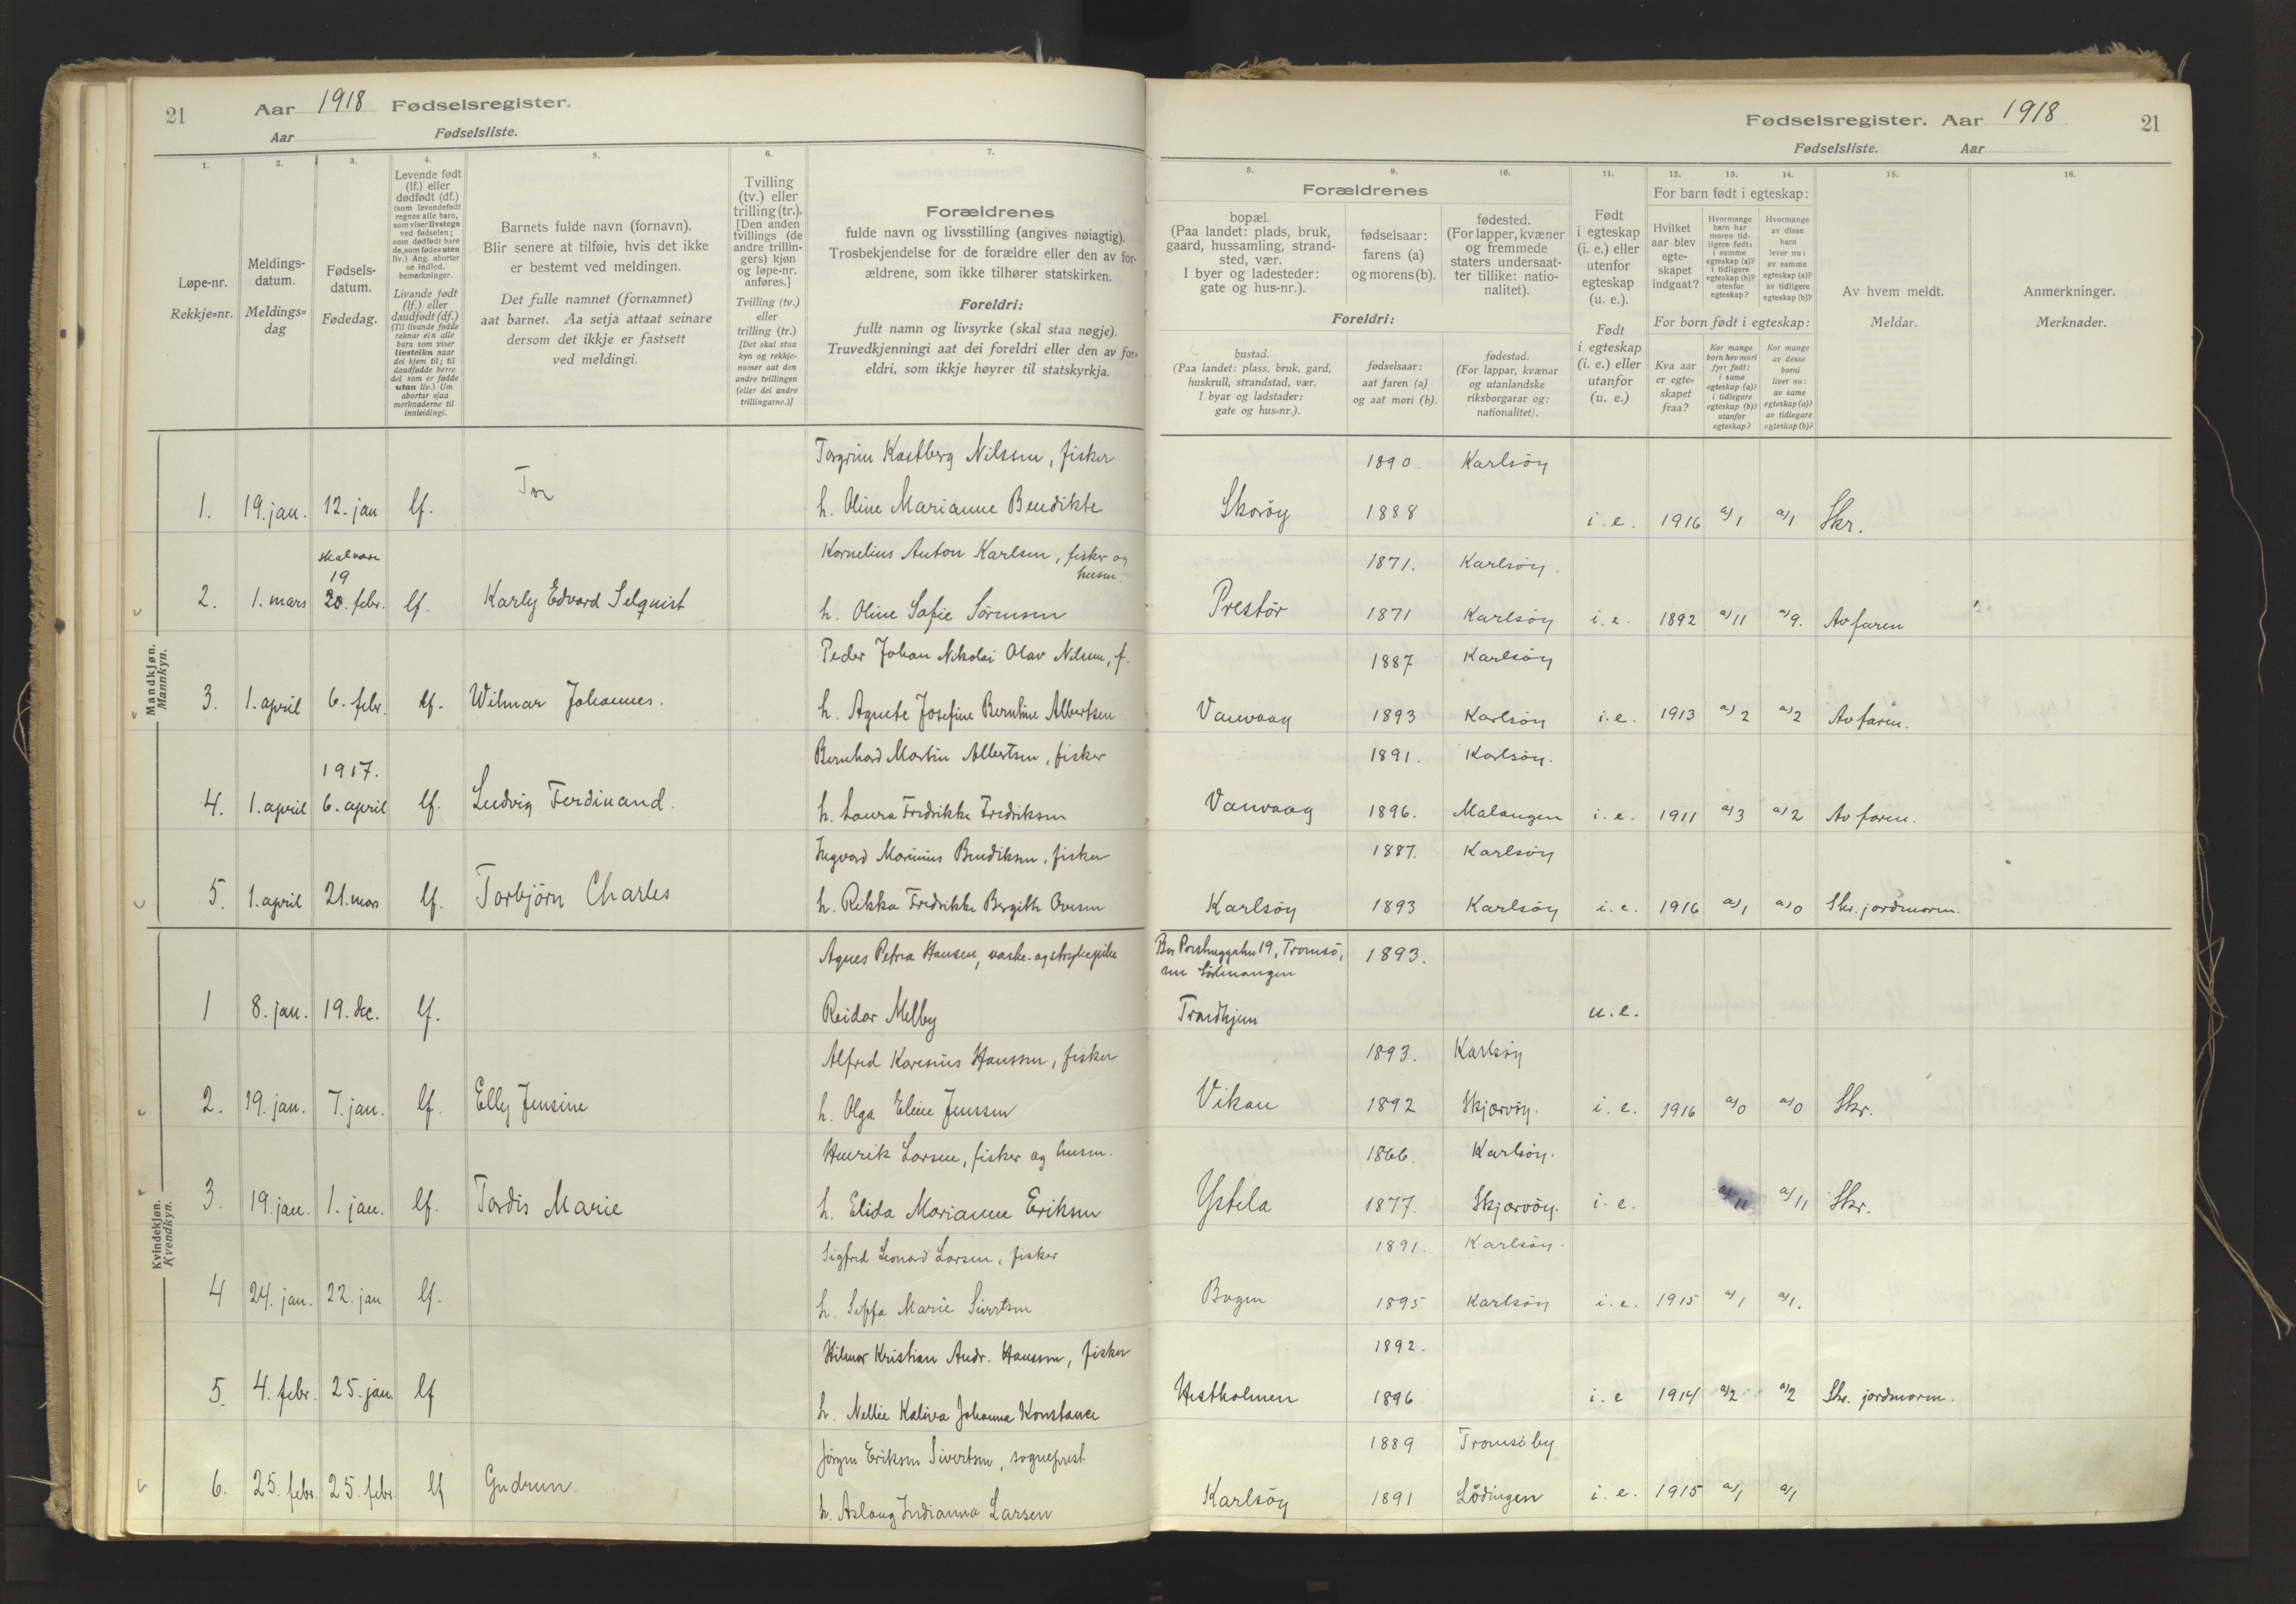 21 Aar 1918 Fødselsregister.
Aar Fødselsliste.
Fødselsregister. Aar 1918 21
Fødselsliste. Aar
1. 2. 3. 4. 5. 6. 7.
Løpe-nr.
Rekkje=nr.
Meldings-
datum.
Meldings=
dag
Fødsels-
datum.
Fødedag.
Levende født
(lf.) eller
dødfødt (df.)
(som levendefødt
regnes alle barn,
som viser livstegn
ved fødselen;
som dødfødt bare
de, som fødes uten
liv.) Ang. aborter
se indled.
bemerkninger.
Livande født
(lf.) eller
daudfødt (df.)
(Til livande fødde
reknar ein alle
barn som viser
livsteikn naar
dei kjem til; til
daudfødde berre
dei som er fødde
utan liv.) Um
abortar sjaa
merknaderne til
innleidingi.
Barnets fulde navn (fornavn).
Blir senere at tilføie, hvis det ikke
er bestemt ved meldingen.
Det fulle namnet (fornamnet)
aat barnet. Aa setja attaat seinare
dersom det ikkje er fastsett
ved meldingi.
Tvilling
(tv.) eller
trilling (tr.).
[Den anden
tvillings (de
andre trillin-
gers) kjøn
og løpe-nr.
anføres.]
Tvilling (tv.)
eller
trilling (tr.)
[Det skal staa
kyn og rekkje-
numer aat den
andre tvillingen
(eller dei andre
trillingarne.)]
Forældrenes
fulde navn og livsstilling (angives nøiagtig).
Trosbekjendelse for de forældre eller den av for-
ældrene, som ikke tilhører statskirken.
Foreldri:
fullt namn og livsyrke (skal staa nøgje).
Truvedkjenningi aat dei foreldri eller den av for=
eldri, som ikkje høyrer til statskyrkja.
8. 9. 10. 11. 12. 13. 14. 15. 16.
Forældrenes
bopæl.
(Paa landet: plads, bruk,
gaard, hussamling, strand-
sted, vær.
I byer og ladesteder:
gate og hus-nr.).
fødselsaar:
farens (a)
og morens (b).
fødested.
(For lapper, kvæner
og fremmede
staters undersaat-
ter tillike: natio-
nalitet).
Foreldri:
bustad.
(Paa landet: plass, bruk, gard,
huskrull, strandstad, vær.
I byar og ladstader:
gate og hus=nr.).
fødselsaar:
aat faren (a)
og aat mori (b).
fødestad.
(For lappar, kvænar
og utanlandske
riksborgarar og:
nationalitet).
Født
i egteskap
(i. e.) eller
utenfor
egteskap
(u. e.).
Født
i egteskap
(i. e.) eller
utanfor
(u. e.)
For barn født i egteskap:
Hvilket
aar blev
egte-
skapet
indgaat?
Hvormange
barn har
moren tid-
ligere født:
i samme
egteskap (a)?
i tidligere
egteskap (b)?
utenfor
egteskap?
Hvormange
av disse
barn
lever nu:
av samme
egteskap (a)?
av tidligere
egteskap (b)?
For born født i egteskap:
Kva aar
er egte=
skapet
fraa?
Kor mange
born hev mori
fyrr født:
i same
egteskap (a)?
i tidlegare
egteskap (b)?
utanfor
egteskap?
Kor mange
av desse
borni
liver no:
av same
egteskap (a)?
av tidlegare
egteskap (b)?
Av hvem meldt.
Meldar.
Anmerkninger.
Merknader.
Mandkjøn.
Mannkyn.
Torgrim Kastberg Nilssen, fisker 1890. Karlsöy
1. 19. jan. 12. jan lf. Tor h. Oline Marianne Bendikte Skoröy 1888 i.e. 1916 a/1 a/1 Skr.
skal være
19
Kornelius Anton Karlsen, fisker og husm. 1871. Karlsöy.
2. 1. mars 20. febr. lf. Karly Edvard Selquist h. Oline Sofie Sörensen Prestör 1871 Karlsöy i.e. 1892 a/11 a/9. Av faren
Peder Johan Nikolai Olav Nilssen, f. 1887 Karlsöy
3. 1. april 6. febr. lf. Wilmar Johannes. h. Agnete Josefine Berntine Albertsen. Vanvaag 1893 Karlsöy i.e. 1913 a/2 a/2 Av faren.
1917. Bernhard Martin Albertsen, fisker 1891. Karlsöy.
4. 1. april 6. april lf. Ludvig Ferdinand. h. Laura Fredrikke Fredriksen Vanvaag 1896. Malangen i.e. 1911 a/3 a/2 Av faren.
Ingvard Marinius Bendiksen, fisker 1887. Karlsöy
5. 1. april 21. mars lf. Torbjörn Charles h. Rikka Fredrikke Bergithe Ovesen Karlsöy 1893 Karlsöy i.e. 1916 a/1 a/0 Skr. jordmorm.
Kvindekjøn.
Kvendkyn.
Agnes Petra Hansen, vaske- og strykepike Bor 19, Tromsö, 1893.
1 8. jan. 19. dec. lf. Reidar Melby Trondhjem u.e.
Alfred Karenius Hanssen, fisker 1893. Karlsöy
2. 19. jan. 7. jan. lf. Elly Jensine h. Olga Eline Jenssen Vikan 1892 Skjærvöy. i.e. 1916 a/0 a/0 Skr.
Henrik Larsen, fisker og husm. 1866. Karlsöy.
3. 19. jan. 1. jan. lf. Tordis Marie h. Elida Marianne Eriksen Ystela 1877. Skjærvöy. i.e. a/11 a/11 Skr.
Sigfred Leonard Larsen, fisker 1891. Karlsöy.
4 24. jan. 22. jan lf. h. Seffa Marie Sivertsen Bogen 1895 Karlsöy i.e. 1915 a/1 a/1.
Hilmar Kristian Andr. Hanssen, fisker 1892.
5. 4. febr. 25. jan. lf h. Nellie Kaliva Johanna Konstance Hestholmen 1896 i.e 1914 a/2 a/2 Skr. jordmorm.
Jörgen Eriksen Sivertsen, sogneprest 1889 Tromsö by
6. 25. febr. 25. febr lf Gudrun. h. Aslaug Indianna Larsen Karlsöy 1891 Lödingen i.e. 1915 a/1 a/1